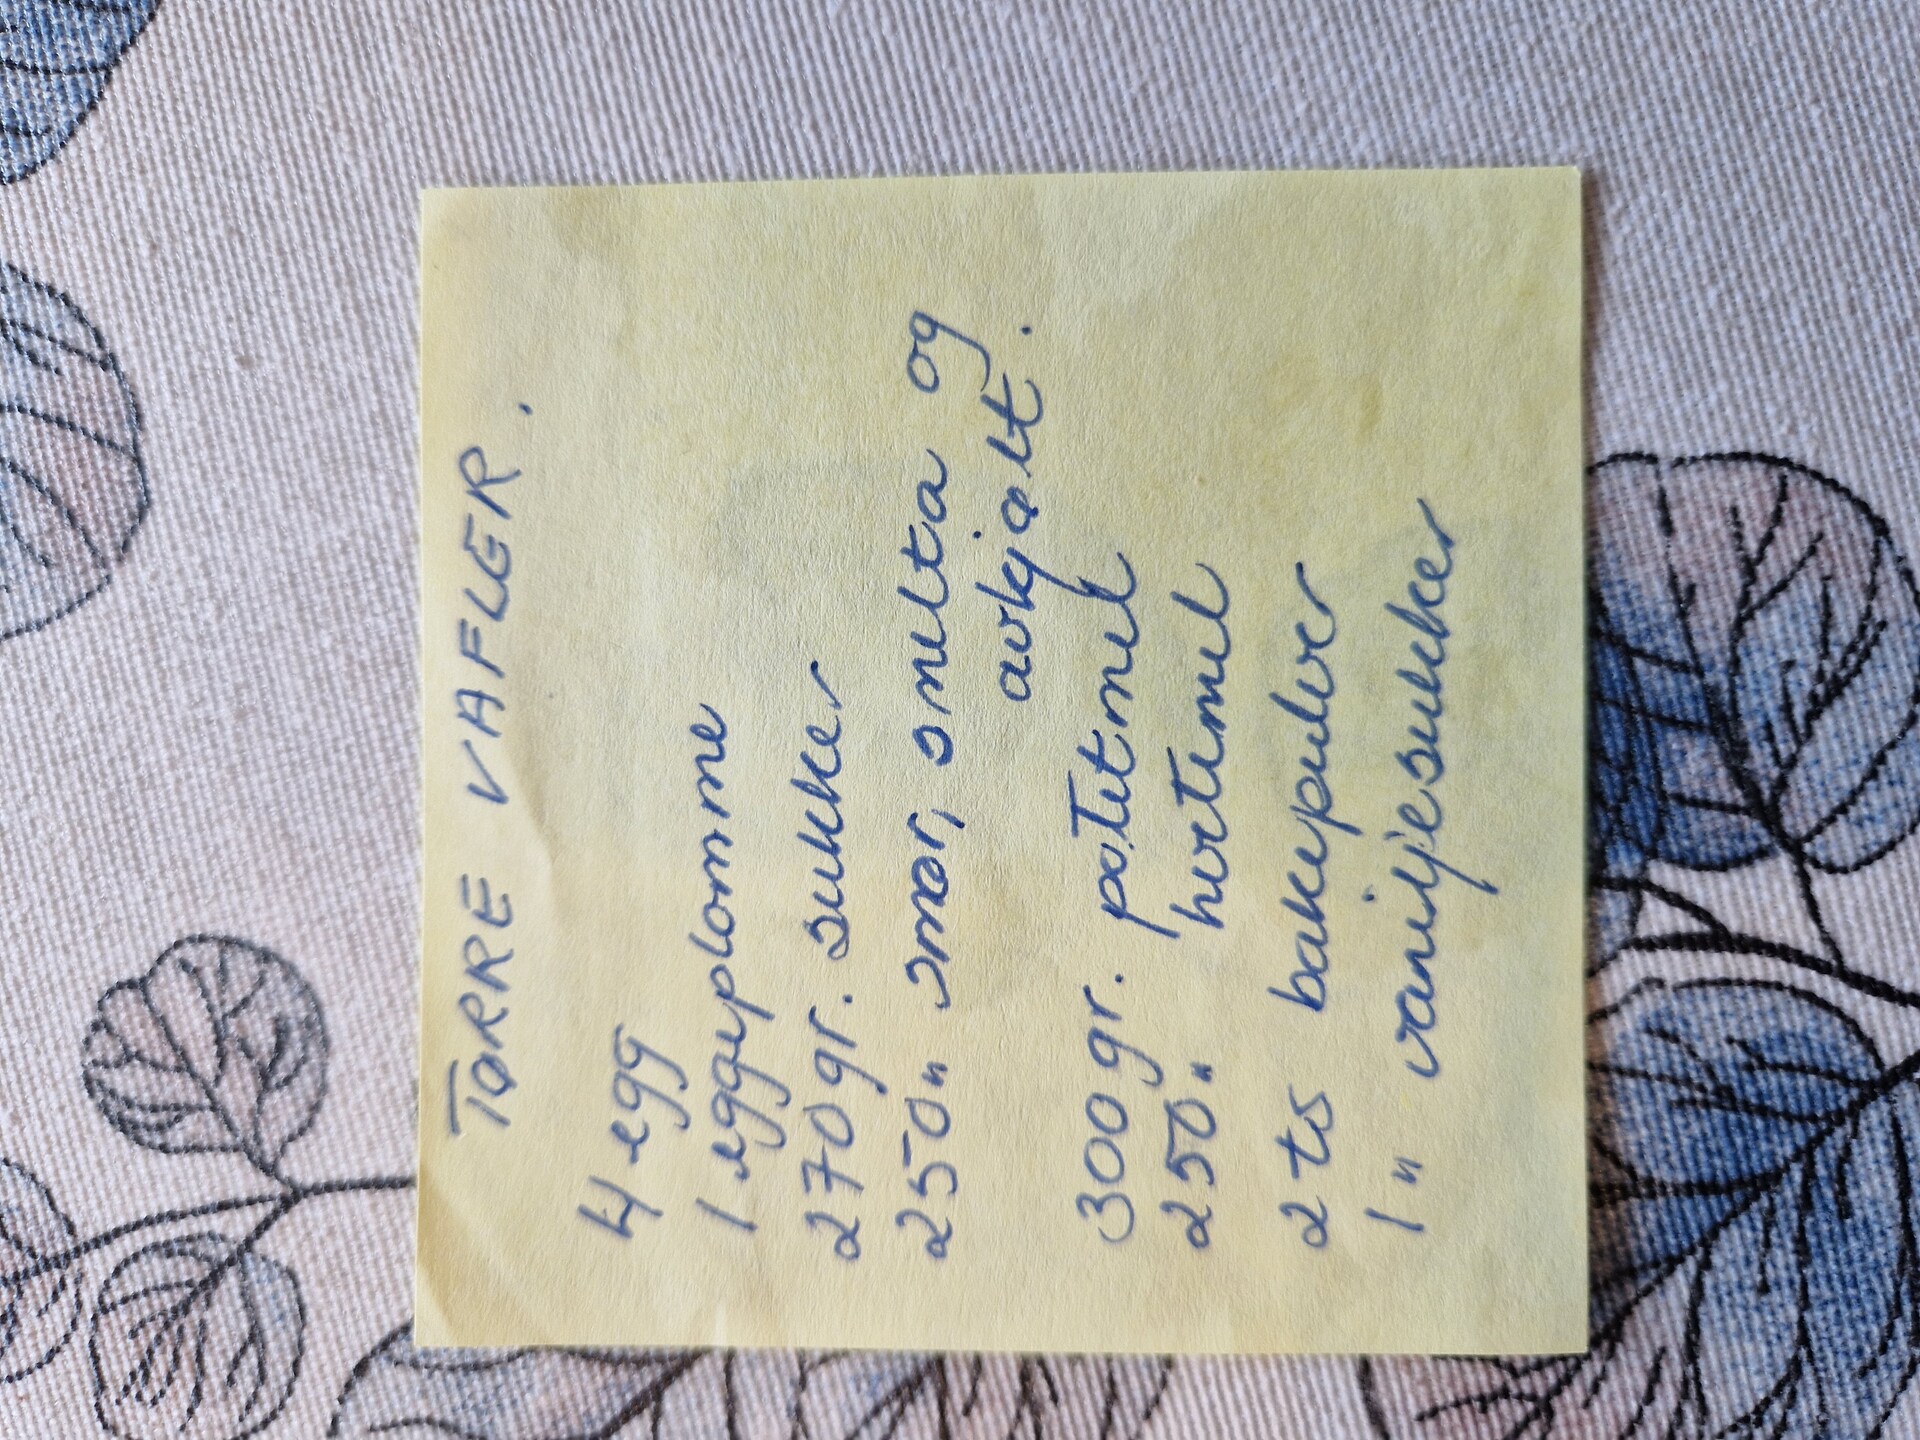 TØRRE VAFLER.
4 egg
1 eggeplomme
270 gr. sukker
250 " smør, smelta og
avkjølt.
300 gr. potetmel
250 " hvetemel
2 ts bakepulver
1 " vaniljesukker